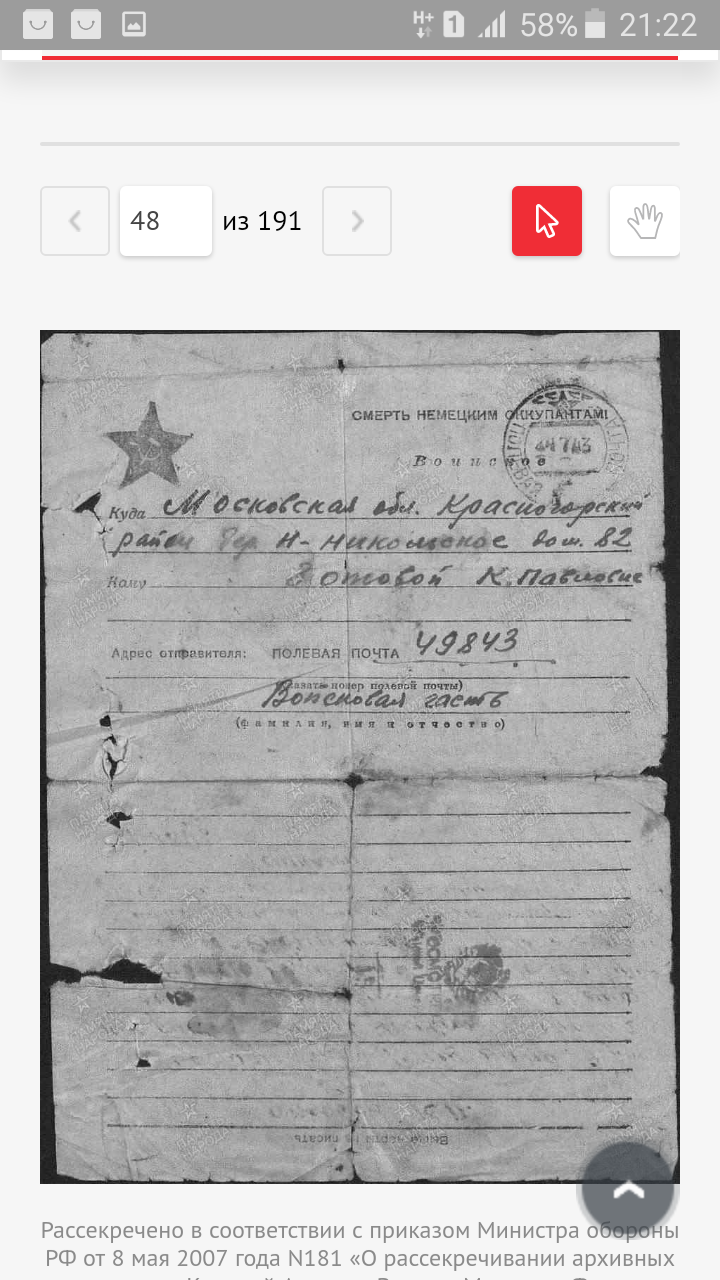 58% 21:22
48 из 191
СМЕРТЬ НЕМЕЦКИМ ОККУПАНТАМ!
Воинское
Куда Московская обл. Красногорский
район дер. Н-Никольское дом. 82
Кому Зотовой К. Павловне
Адрес отправителя: ПОЛЕВАЯ ПОЧТА 49843
(указать номер полевой почты)
Воисковая часть
(фамилия, имя и отчество)
Рассекречено в соответствии с приказом Министра обороны
РФ от 8 мая 2007 года N181 «О рассекречивании архивных